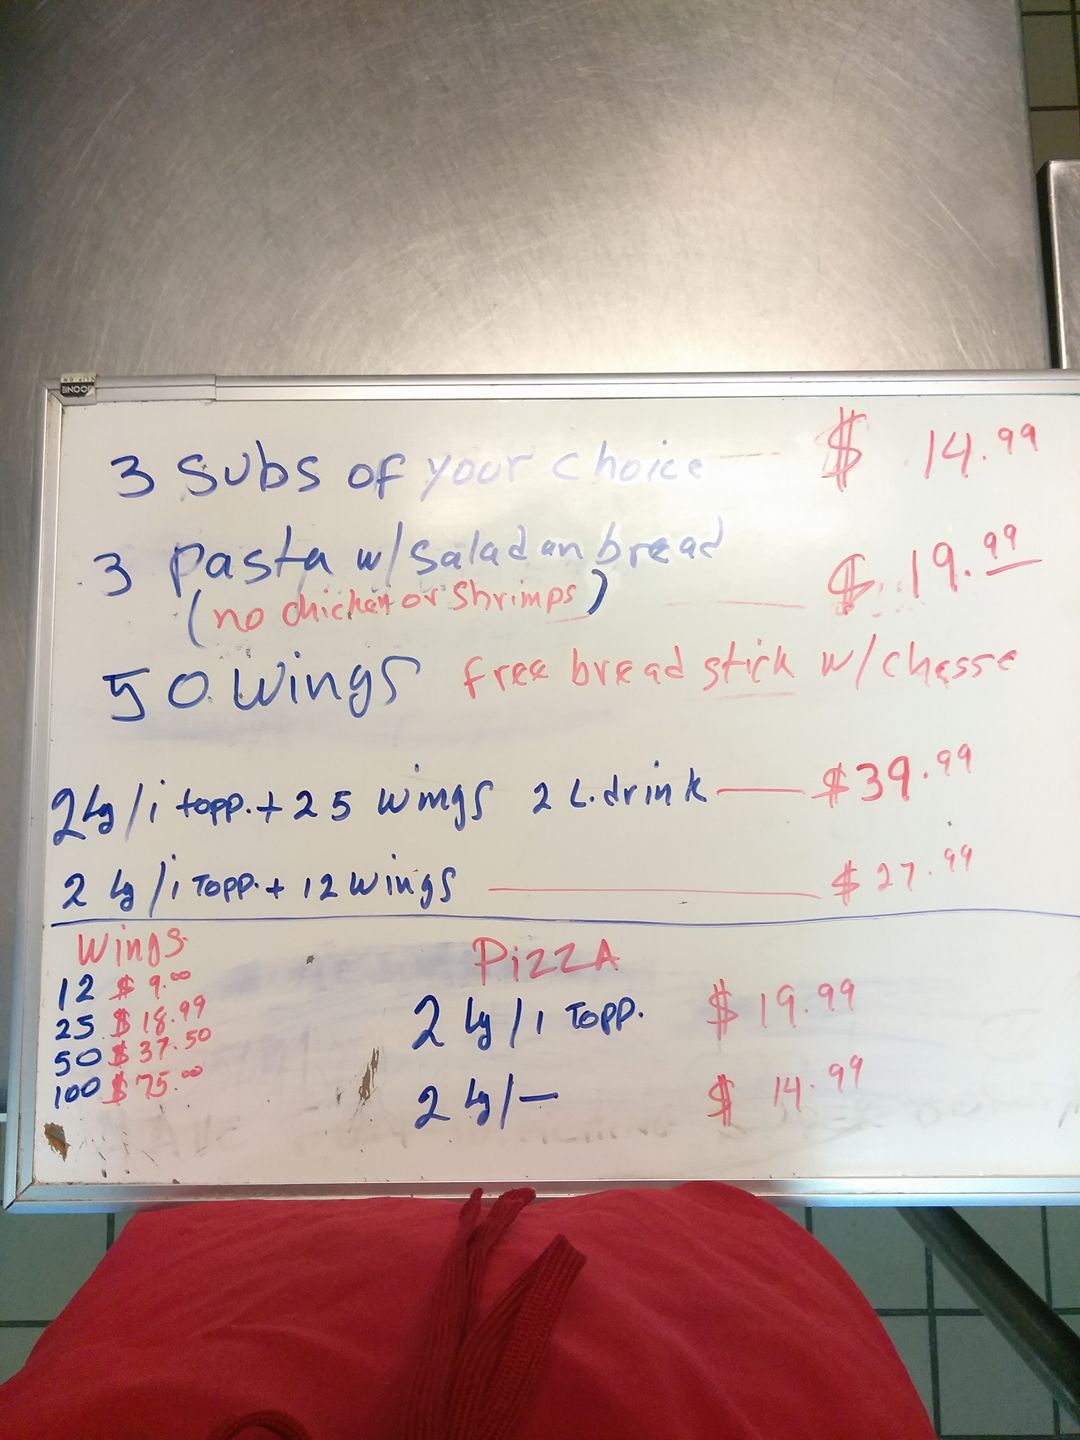 3 Subs of your choice $ 14.99
3 Pasta w/Salad an bread
(no chicken or Shrimps) $ 19.99
50 Wings free bread stick w/chesse
2 Lg/1 topp. + 25 Wings 2 L. drink $39.99
2 Lg/1 Topp. + 12 Wings $27.99
Wings
12 $ 9.00
25 $ 18.99
50 $ 37.50
100 $ 75.00
PizzA
2 Lg/1 Topp. $ 19.99
2 Lg/— $ 14.99